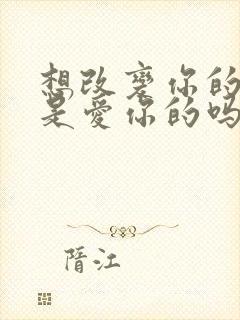 想改变你的
是爱你的吗
晋江